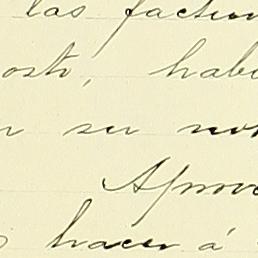 las factur
osto, habi
n su no
Aprove
hacer á